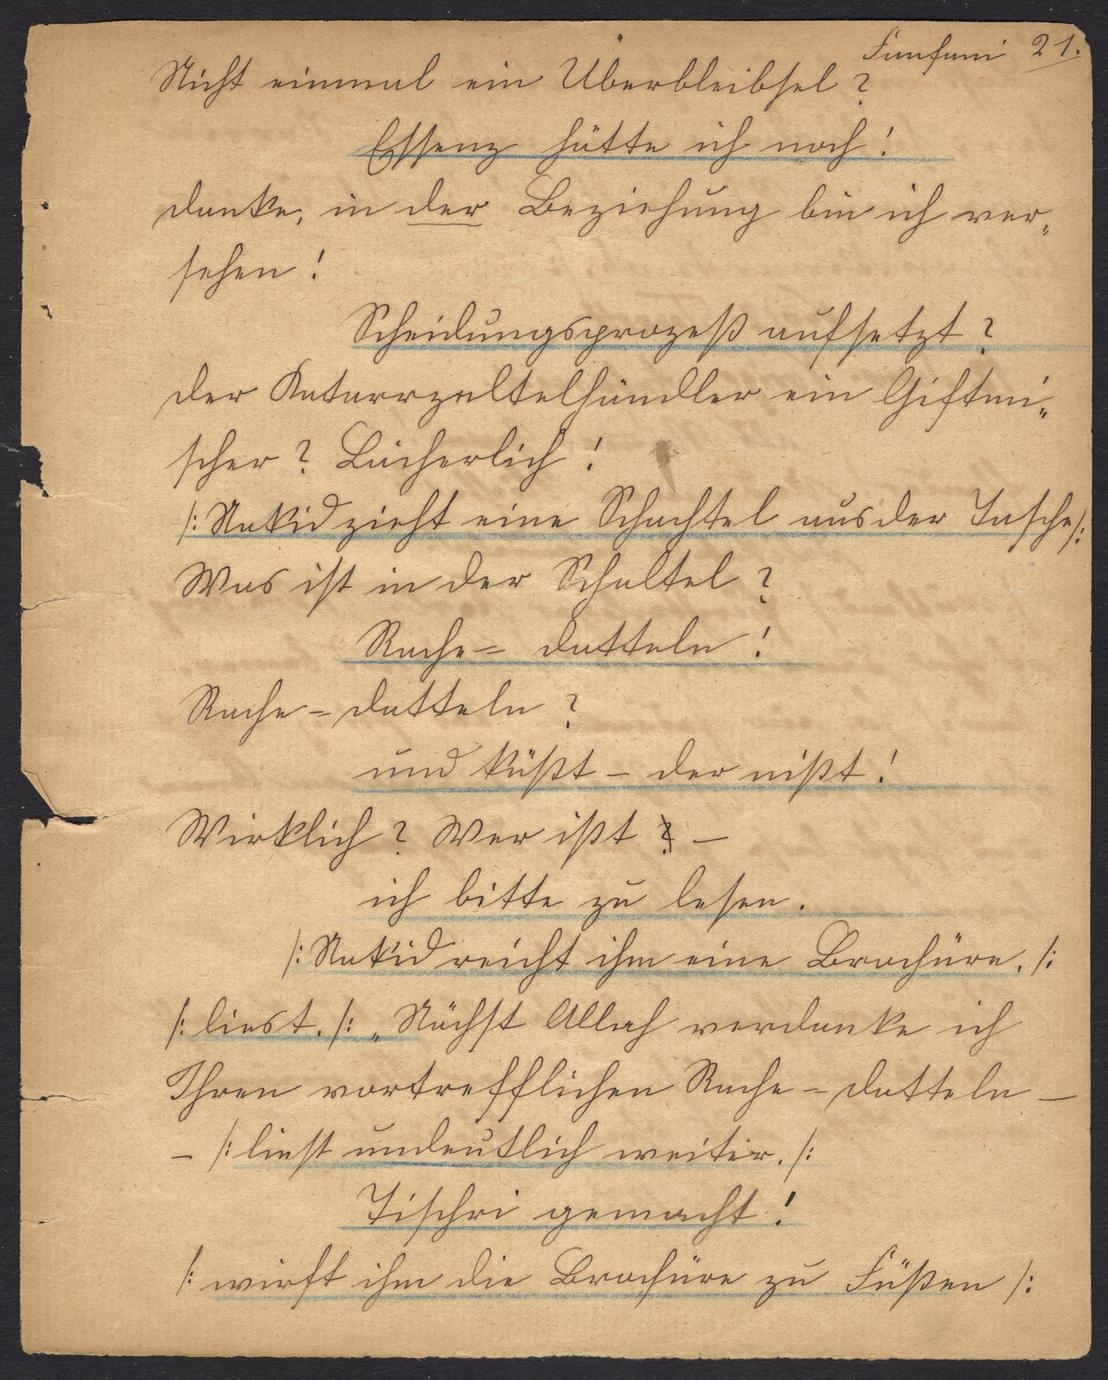 Fanfani 21.
Nicht einmal ein Überbleibsel?
Essenz hätte ich noch!
danke, in der Beziehung bin ich ver„
sehen!
Scheidungsprozeß aufsetzt?
der Katarrzeltelhändler ein Giftmi„
scher? Lächerlich!
/: Nakid zieht eine Schachtel aus der Tasche /:
Was ist in der Schaltel?
Rache= datteln!
Rache=datteln?
und küßt – der nißt!
Wirklich? Wer ißt –
ich bitte zu lesen.
/: Nakid reicht ihm eine Brochüre. /:
/: liest. /: „Nächst Allah verdanke ich
Ihren vortrefflichen Rache=datteln –
– /: liest undeutlich weiter. /:
Tischri gemacht!
/: wirft ihm die Brochüre zu Füßen /: